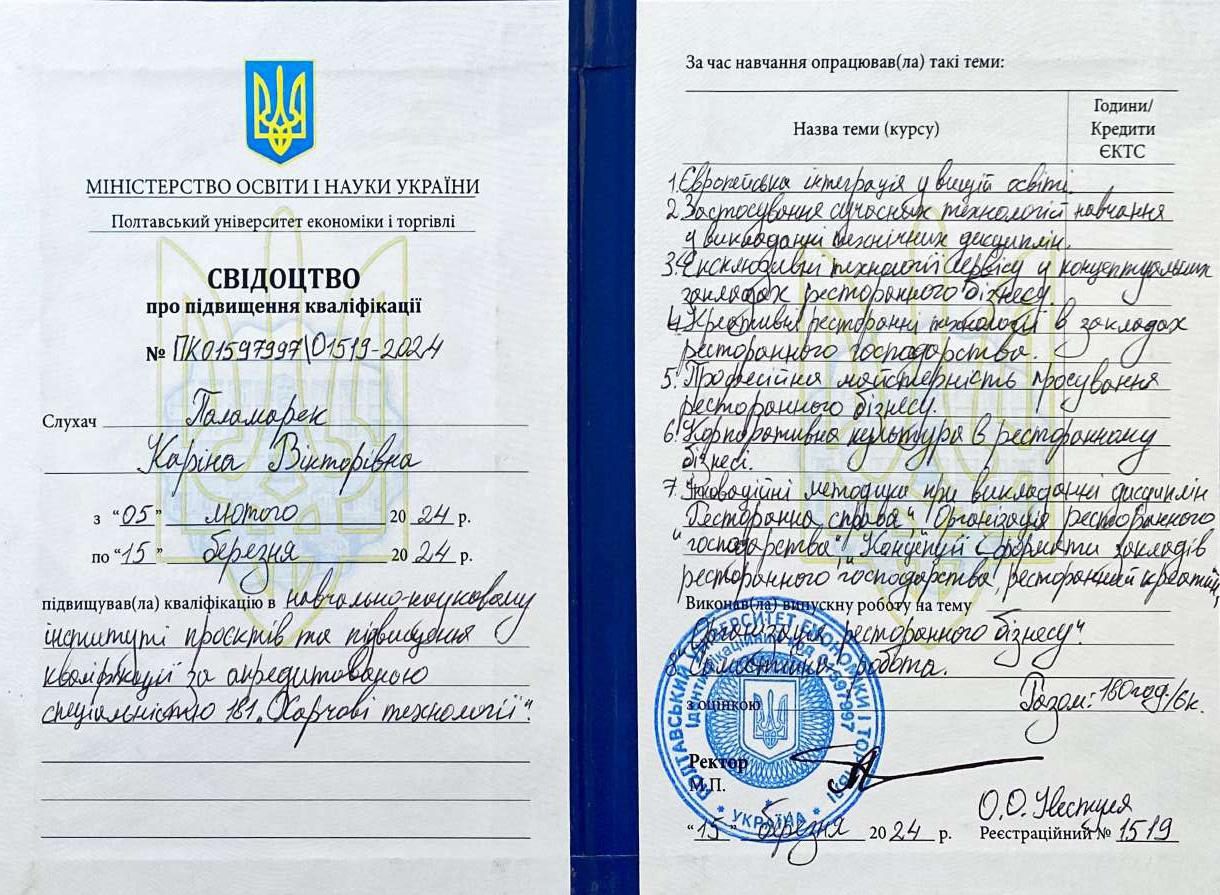 МІНІСТЕРСТВО ОСВІТИ І НАУКИ УКРАЇНИ
Полтавський університет економіки і торгівлі
СВІДОЦТВО
про підвищення кваліфікації
№ ПК01597997\01519-2024
Слухач Паламарек
Каріна Вікторівна
з “05” лютого 2024 р.
по “15” березня 2024 р.
підвищував(ла) кваліфікацію в навчально-науковому
інституті проєктів та підвищення
кваліфікації за акредитованою
спеціальністю 181 „Харчові технології".
За час навчання опрацював(ла) такі теми:
Назва теми (курсу)
Години/
Кредити
ЄКТС
1. Європейська інтеграція у вищій освіті.
2. Застосування сучасних технологій навчання
у викладанні технічних дисциплін.
3. Ексклюзивні технології сервісу у концептуальних
закладах ресторанного бізнесу.
4. Креативні ресторанні технології в закладах
ресторанного господарства.
5. Професійна майстерність просування
ресторанного бізнесу.
6. Корпоративна культура в ресторанному
бізнесі.
7. Інноваційні методики при викладанні дисциплін
Ресторанна справа", "Організація ресторанного
господарства", "Концепції і формати закладів
ресторанного господарства, ресторанний креатив,
Виконав(ла) випускну роботу на тему
Організація ресторанного бізнесу".
8. Самостійна робота.
Разом: 180 год./6к.
з оцінкою
ПОЛТАВСЬКИЙ УНІВЕРСИТЕТ ЕКОНОМІКИ І ТОРГІВЛІ
Ідентифікаційний код 01597997
* УКРАЇНА *
Ректор
М.П.
О.О. Нестуля
“15” березня 2024 р.
Реєстраційний № 1519